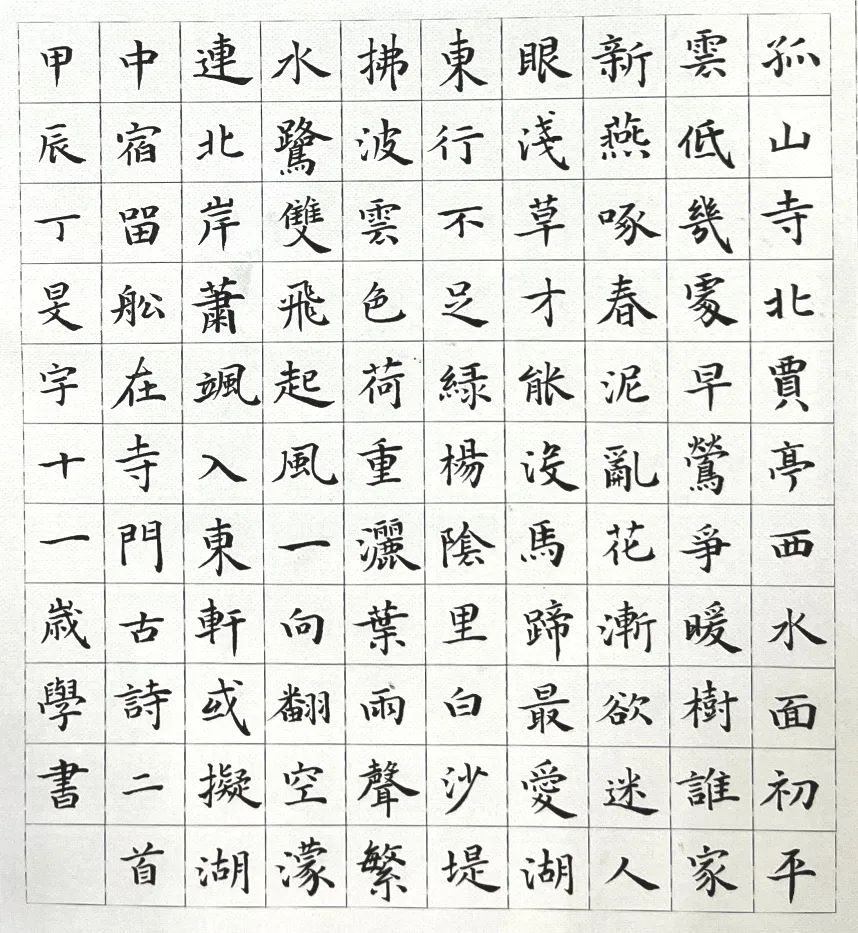 孤山寺北賈亭西水面初平
雲低幾處早鶯爭暖樹誰家
新燕啄春泥亂花漸欲迷人
眼淺草才能沒馬蹄最愛湖
東行不足綠楊陰里白沙堤
拂波雲色荷重灑葉雨聲繁
水鷺雙飛起風一向翻空濛
連北岸蕭颯入東軒或擬湖
中宿留舩在寺門古詩二首
甲辰丁旻宇十一歲學書